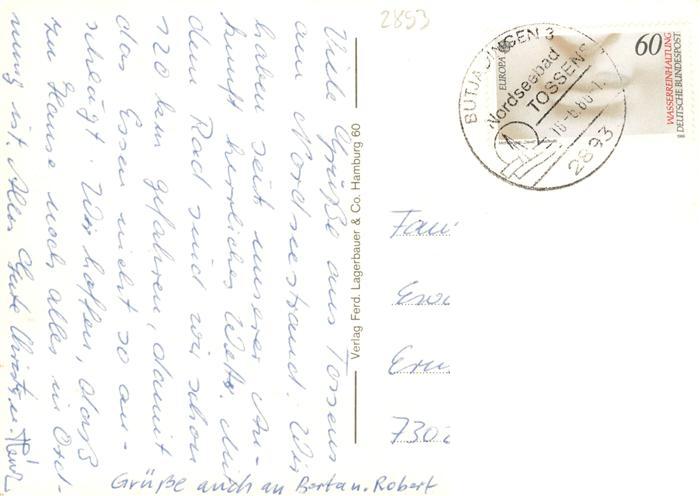 Viele Grüße aus Tossens
am Nordseestrand. Wir
haben seit unserer An-
kunft herrliches Wetter. Mit
dem Rad sind wir schon
120 km gefahren, damit
das Essen nicht so an-
schlägt. Wir hoffen, daß
zu Hause noch alles in Ord-
nung ist. Alles Gute Christa u. Heinz
Grüße auch an Berta u. Robert
Verlag Ferd. Lagerbauer & Co. Hamburg 60
2893
BUTJADINGEN 3
Nordseebad
TOSSENS
2893
EUROPA
60
WASSERREINHALTUNG
DEUTSCHE BUNDESPOST
Fam
Erw
730